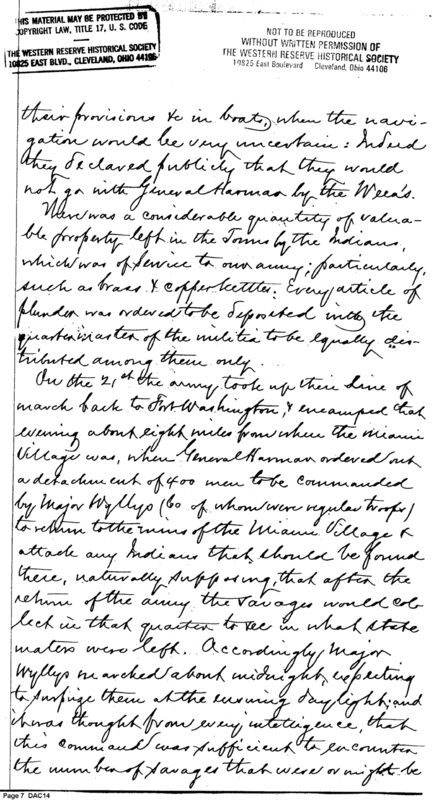 THIS MATERIAL MAY BE PROTECTED BY
COPYRIGHT LAW, TITLE 17, U. S. CODE
THE WESTERN RESERVE HISTORICAL SOCIETY
10825 EAST BLVD., CLEVELAND, OHIO 44106
NOT TO BE REPRODUCED
WITHOUT WRITTEN PERMISSION OF
THE WESTERN RESERVE HISTORICAL SOCIETY
10825 East Boulevard Cleveland, Ohio 44106
their provisions &c in boats, when the navi-
gation would be very uncertain: Indeed
they declared publicly that they would
not go with General Harmar by the Weea's.
There was a considerable quantity of valua-
ble property left in the Towns by the Indians,
which was of service to our army; particularly,
such as brass & copper kettles. Every article of
plunder was ordered to be deposited with the
quartermaster of the militia to be equally dis-
tributed among them only
On the 21st the army took up their line of
march back to Fort Washington, & encamped that
evening about eight miles from where the Miami
Village was, when General Harmar ordered out
a detachment of 400 men to be commanded
by Major Wyllys (60 of whom were regular troops)
to return to the ruins of the Miami Village &
attack any Indians that should be found
there, naturally supposing, that after the
return of the army the savages would col-
lect in that quarter to see in what state
maters were left. Accordingly Major
Wyllys marched about midnight, expecting
to surprize them at the ensuing daylight; and
it was thought from every intelligence, that
this command was sufficient to encounter
the number of savages that were or might be
Page 7 DAC14